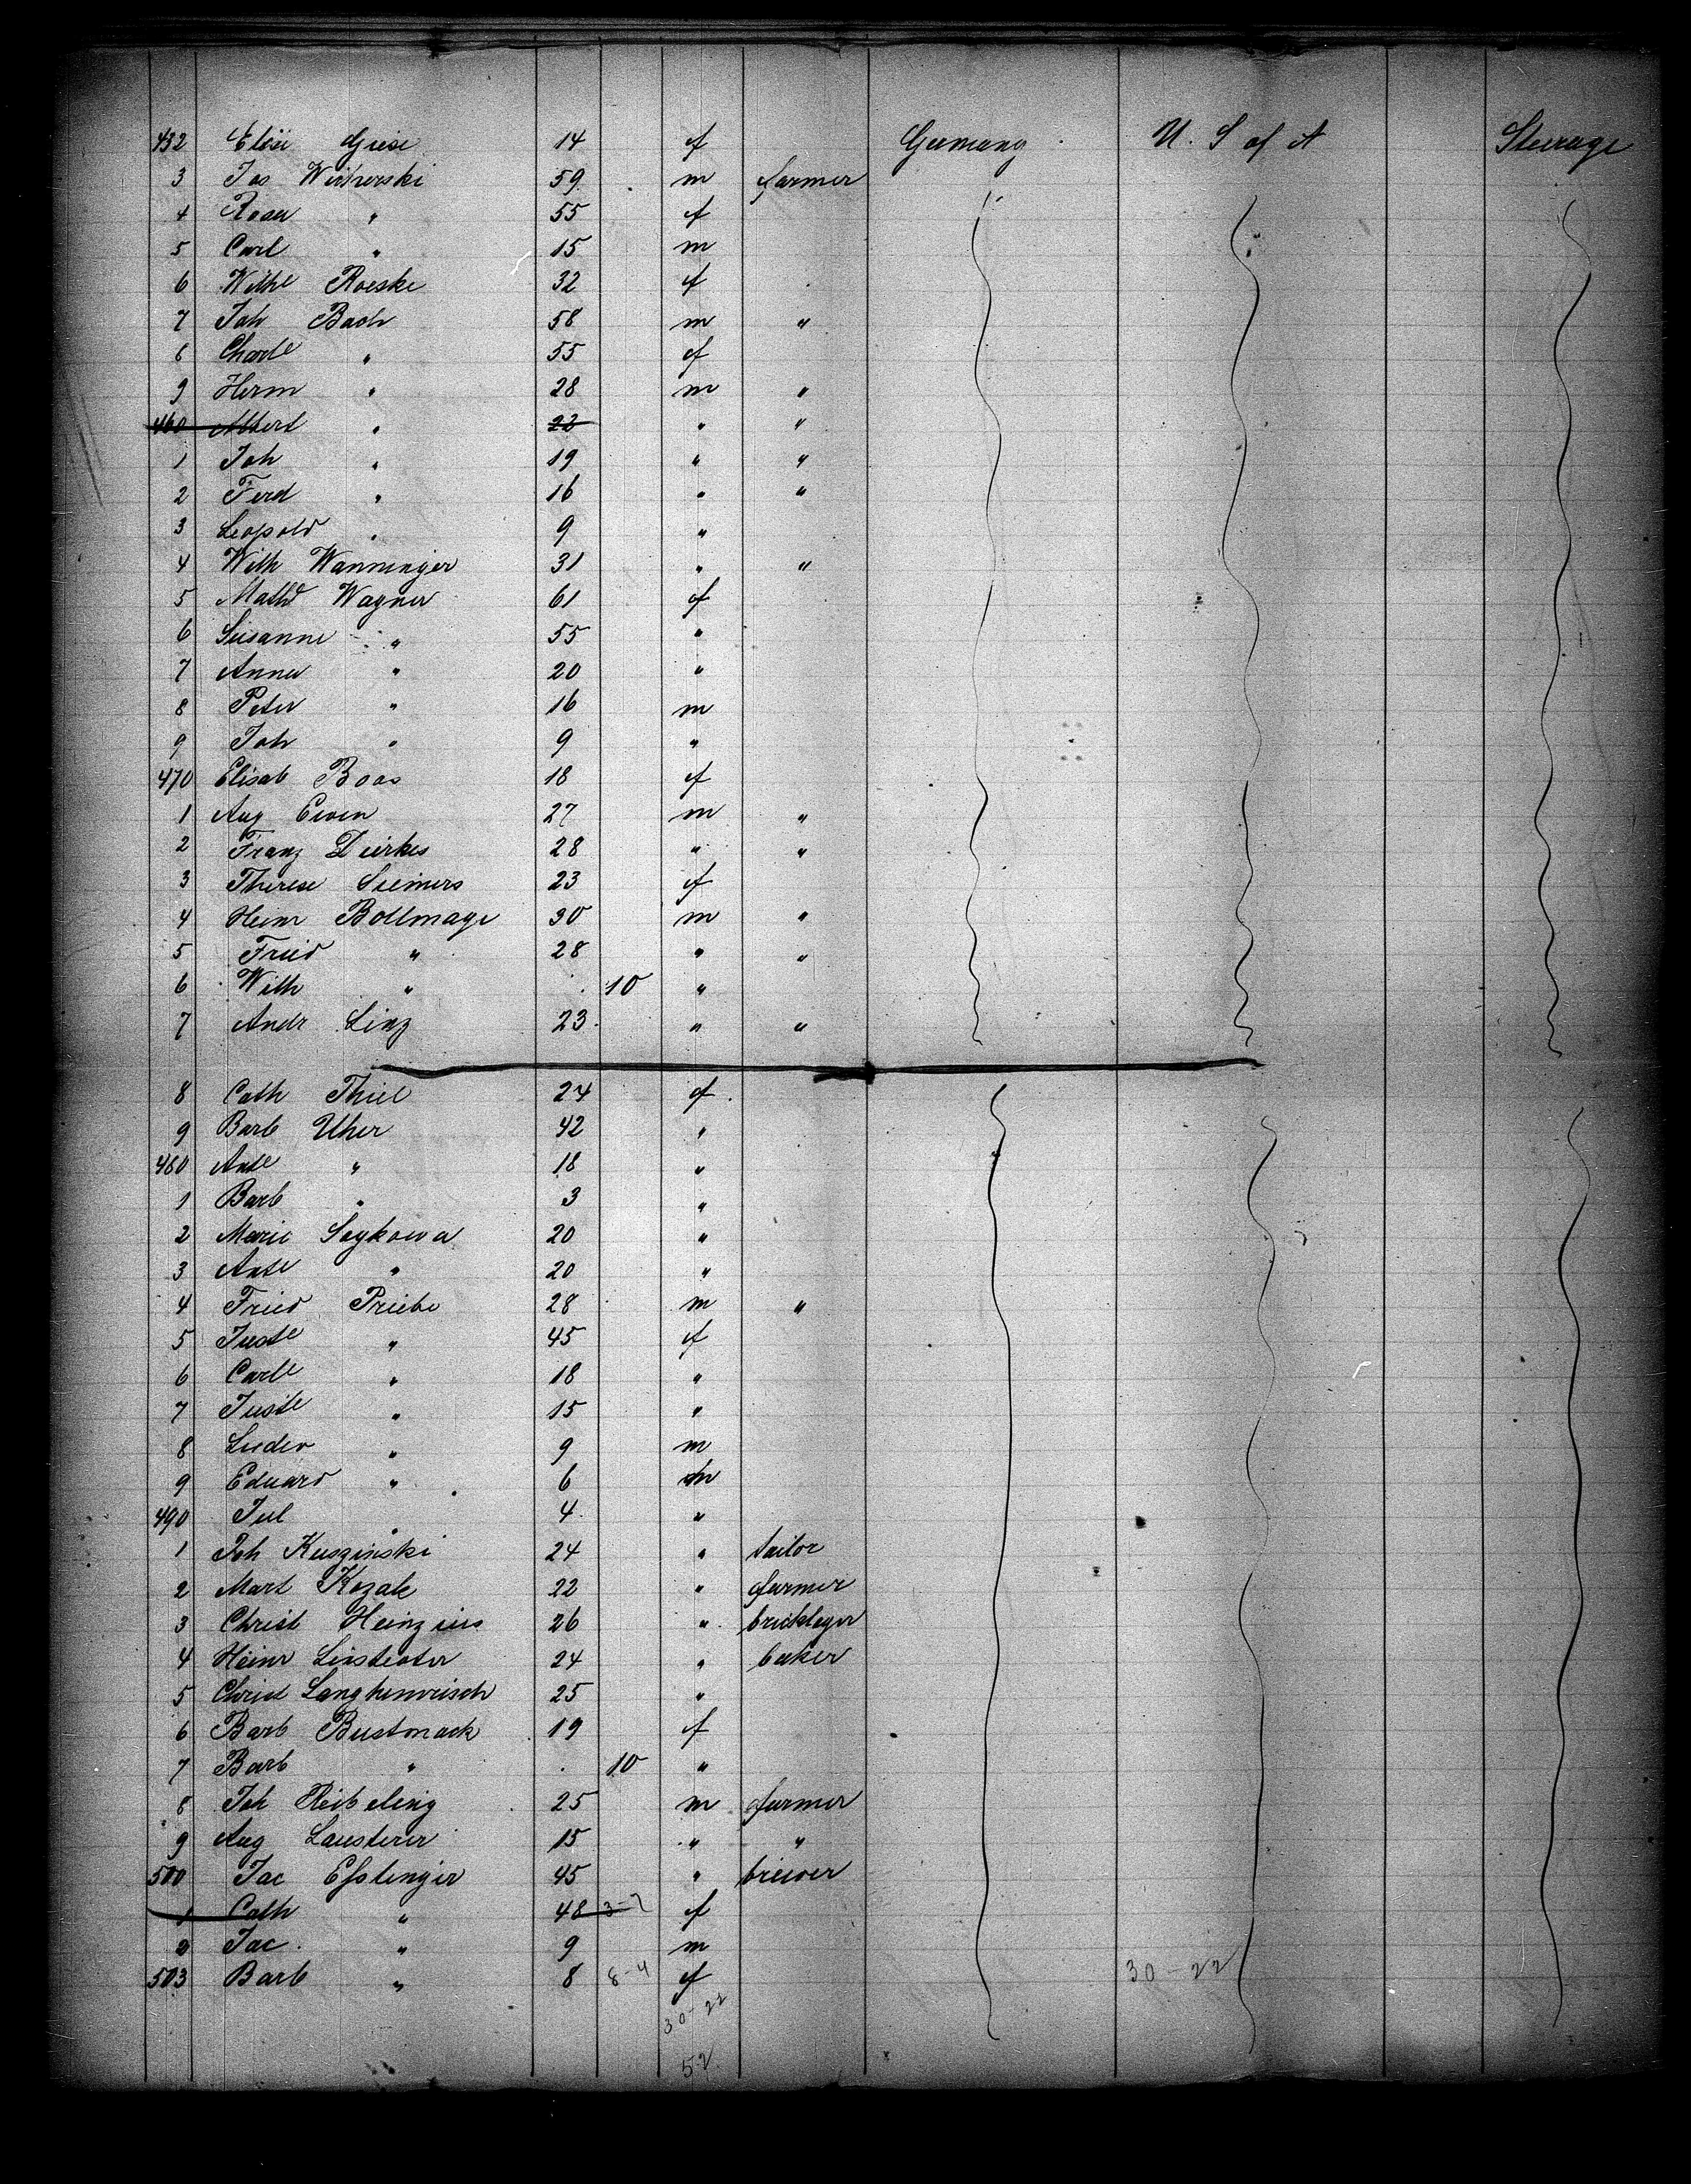 432 Elise Giese 14 f Germany U. S of A Steerage
3 Jos Wicherski 59 m farmer
4 Rosa " 55 f
5 Carl " 15 m
6 Wilhe Roeske 32 f
7 Joh Bach 58 m "
8 Charle " 55 f
9 Herm " 28 m "
460 Albert " 22 " "
1 Joh " 19 " "
2 Ferd " 16 " "
3 Leopold " 9 "
4 Wilh Wanninger 31 " "
5 Mathd Wagner 61 f
6 Susanne " 55 "
7 Anna " 20 "
8 Peter " 16 m
9 Joh " 9 "
470 Elisab Boas 18 f
1 Aug Ewen 27 m "
2 Franz Dierkes 28 " "
3 Therese Siemers 23 f
4 Heinr Bollmage 30 m "
5 Fried " 28 " "
6 Wilh " 10 "
7 Andr Linz 23 " "
8 Cath Thiel 24 f
9 Barb Uher 42 "
480 Ante " 18 "
1 Barb " 3 "
2 Marie Soykowa 20 "
3 Ante " 20 "
4 Fried Priebe 28 m "
5 Juste " 45 f
6 Carle " 18 "
7 Juste " 15 "
8 Luder " 9 m
9 Eduard " 6 m
490 Jul " 4 "
1 Joh Kuszinski 24 " tailor
2 Mart Kozak 22 " farmer
3 Christ Heinzius 26 " bricklayer
4 Heinr 24 " baker
5 Christ Langhenrisch 25 "
6 Barb Bustmack 19 f
7 Barb " 10 "
8 Joh Reibeling 25 m farmer
9 Aug Lausterer 15 " "
500 Jac Esslinger 45 " brewer
1 Cath " 48 3-7 f
2 Jac " 9 m
503 Barb " 8 8-4 f 30-22
30-22
52